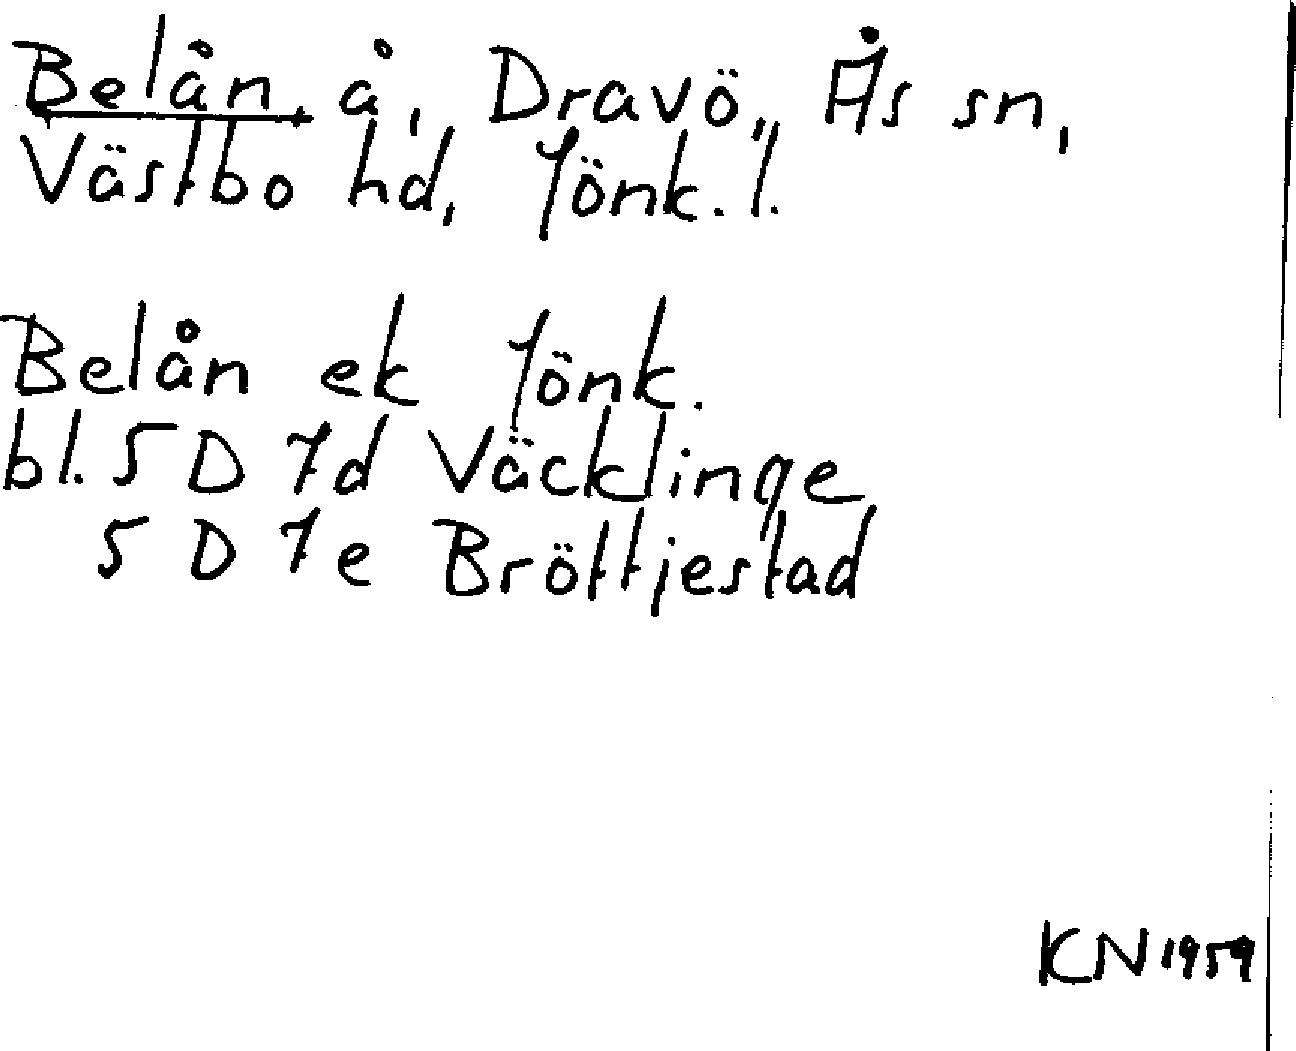 Belån, å, Dravö, Ås sn,
Västbo hd, Jönk. l.
Belån ek Jönk.
bl. 5 D 7d Väcklinge
5 D 7e Bröttjestad
KN 1959